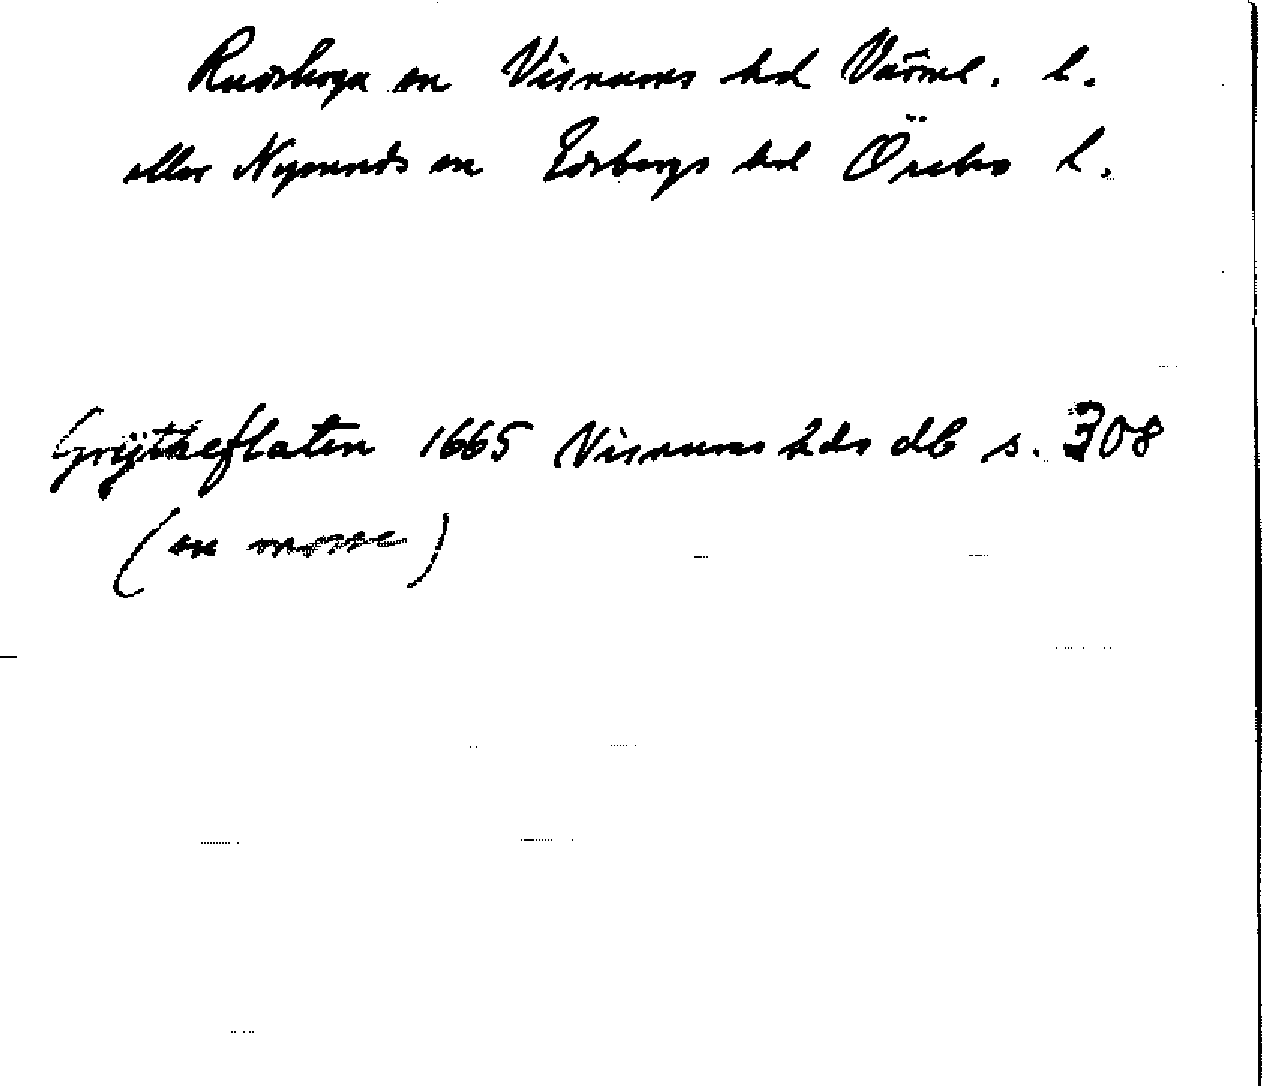 Rudskoga sn Visnums hd Värml. l.
eller Nysunds sn Edsbergs hd Örebro l.
Grÿtheflaten 1665 Visnums hds db s. 308
(en mosse)